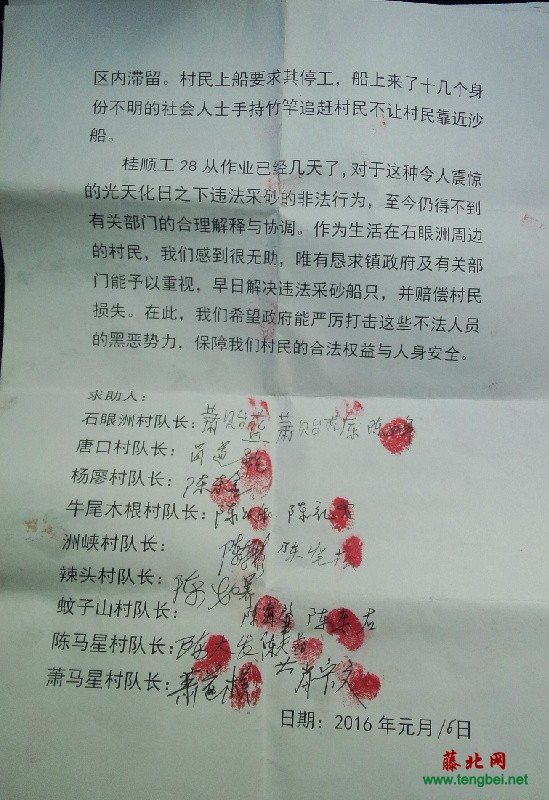 区内滞留。村民上船要求其停工，船上来了十几个身
份不明的社会人士手持竹竿追赶村民不让村民靠近沙
船。
桂顺工 28 从作业已经几天了，对于这种令人震惊
的光天化日之下违法采砂的非法行为，至今仍得不到
有关部门的合理解释与协调。作为生活在石眼洲周边
的村民，我们感到很无助，唯有恳求镇政府及有关部
门能予以重视，早日解决违法采砂船只，并赔偿村民
损失。在此，我们希望政府能严厉打击这些不法人员
的黑恶势力，保障我们村民的合法权益与人身安全。
求助人：
石眼洲村队长：
唐口村队长：
杨廖村队长：
牛尾木根村队长：陈 陈
洲峡村队长： 陈
辣头村队长：
蚊子山村队长： 陈
陈马星村队长：
萧马星村队长： 肖宗文
日期：2016 年元月16日
藤北网
www.tengbei.net